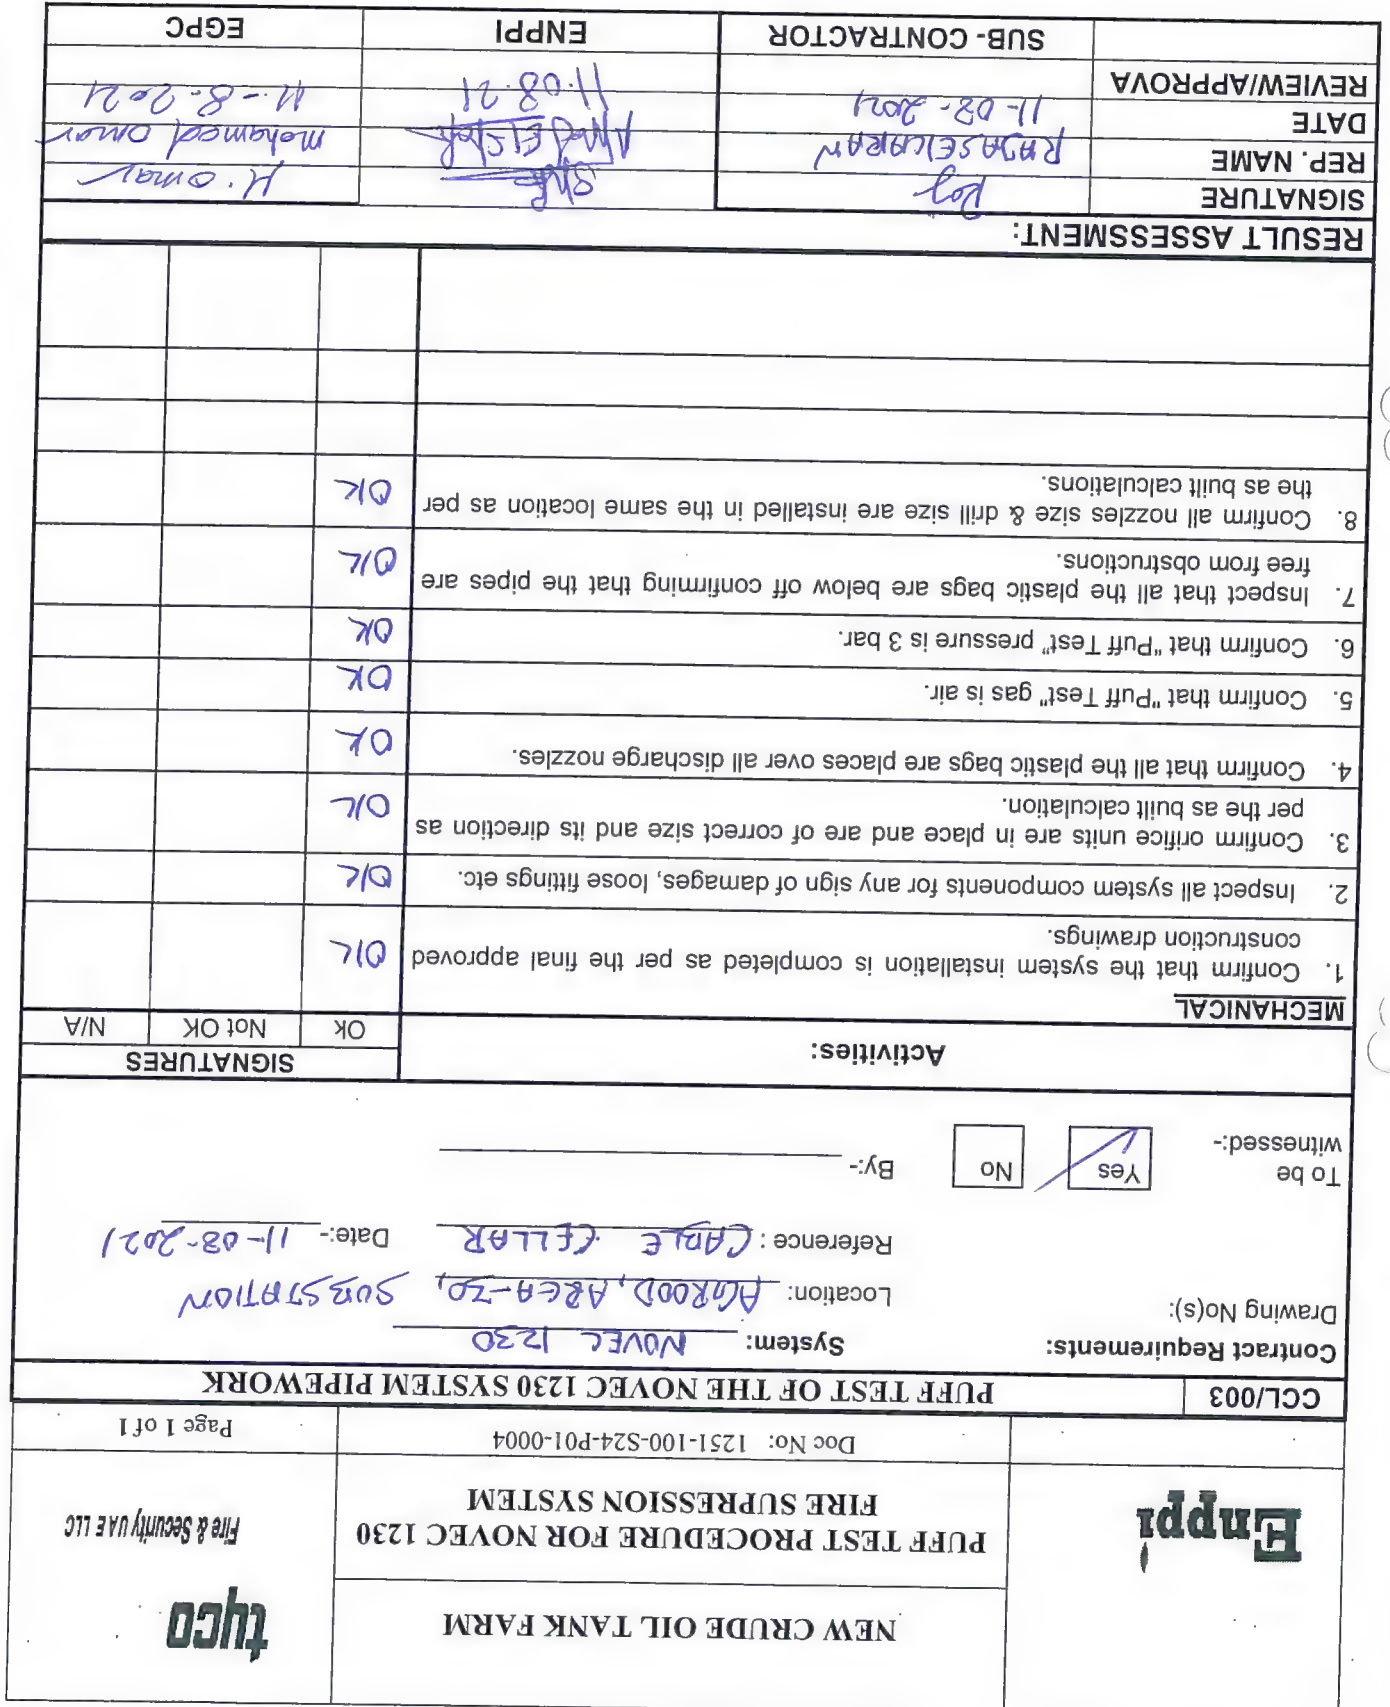 NEW CRUDE OIL TANK FARM
Enppi
tyco
Fire & Security UAE LLC
PUFF TEST PROCEDURE FOR NOVEC 1230
FIRE SUPRESSION SYSTEM
Doc No: 1251-100-S24-P01-0004
Page 1 of 1
CCL/003
PUFF TEST OF THE NOVEC 1230 SYSTEM PIPEWORK
Contract Requirements:
System: NOVEC 1230
Drawing No(s):
Location: AGROOD, AREA-30, SUBSTATION
Reference: CABLE CELLAR Date:- 11-08-2021
To be
witnessed:-
Yes
No
By:-
Activities:
SIGNATURES
Ok
Not OK
N/A
MECHANICAL
1. Confirm that the system installation is completed as per the final approved
construction drawings.
OK
2. Inspect all system components for any sign of damages, loose fittings etc.
OK
3. Confirm orifice units are in place and are of correct size and its direction as
per the as built calculation.
OK
4. Confirm that all the plastic bags are places over all discharge nozzles.
OK
5. Confirm that "Puff Test" gas is air.
OK
6. Confirm that "Puff Test" pressure is 3 bar.
OK
7. Inspect that all the plastic bags are below off confirming that the pipes are
free from obstructions.
OK
8. Confirm all nozzles size & drill size are installed in the same location as per
the as built calculations.
OK
RESULT ASSESSMENT:
SIGNATURE Raj M. omar
REP. NAME RAJASEKARAN mohamed omar
DATE 11-08-2021 11.08.21 11-8-2021
REVIEW/APPROVA
SUB- CONTRACTOR ENPPI EGPC